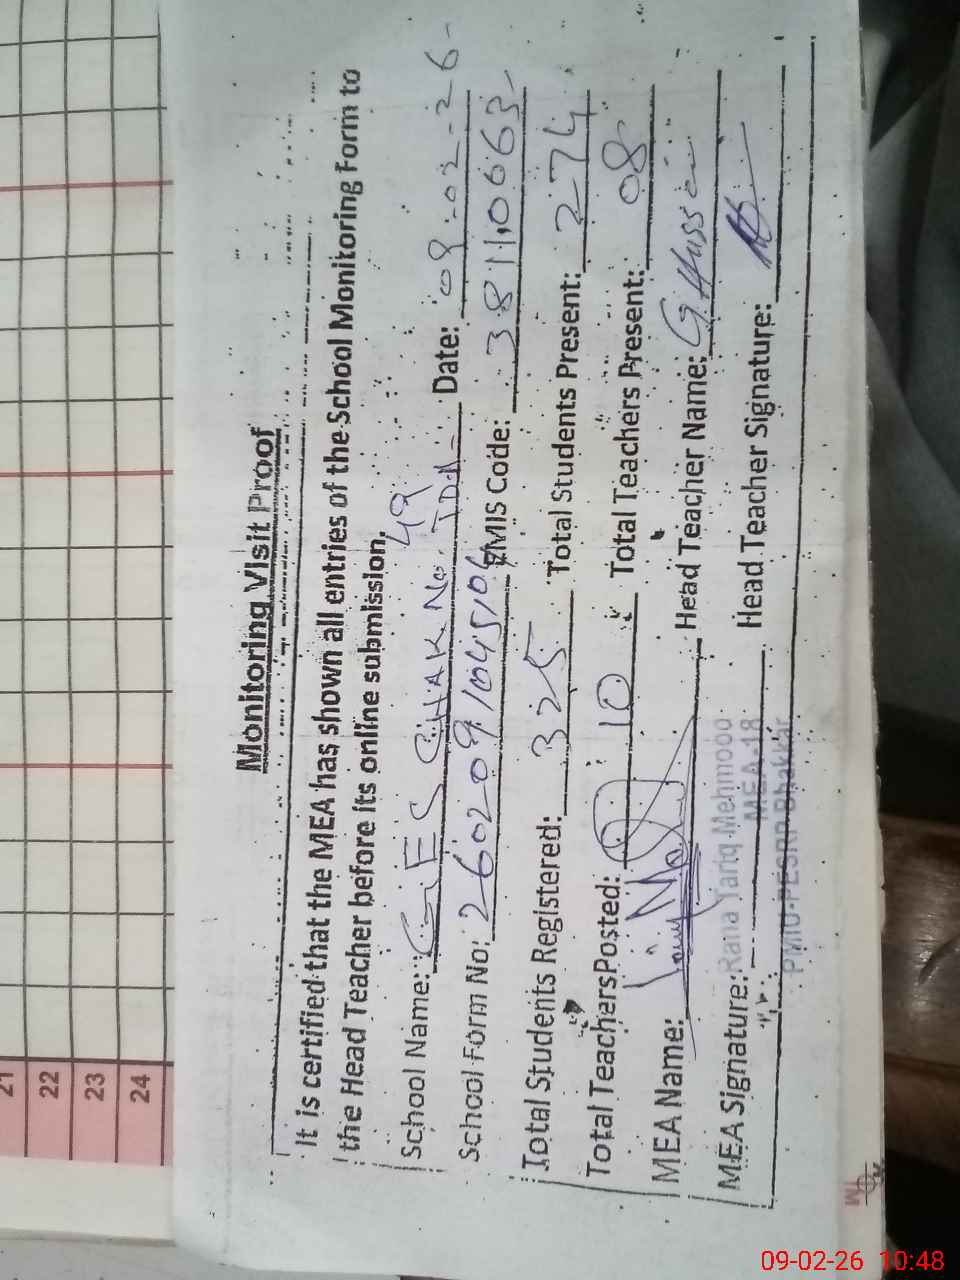 21
22
23
24
Monitoring Visit Proof
It is certified that the MEA has shown all entries of the School Monitoring Form to
the Head Teacher before its online submission.
School Name: GES CHAK No. 49 TDA Date: 09-02-26
School Form No: 260209104510 EMIS Code: 38110663
Total Students Registered: 325 Total Students Present: 274
Total Teachers Posted: 10 Total Teachers Present: 08
MEA Name: Head Teacher Name: G. Hussain
MEA Signature: Head Teacher Signature:
Rana Tariq Mehmood
MEA-18
PMIU-PESRP Bhakkar
TM
09-02-26 10:48